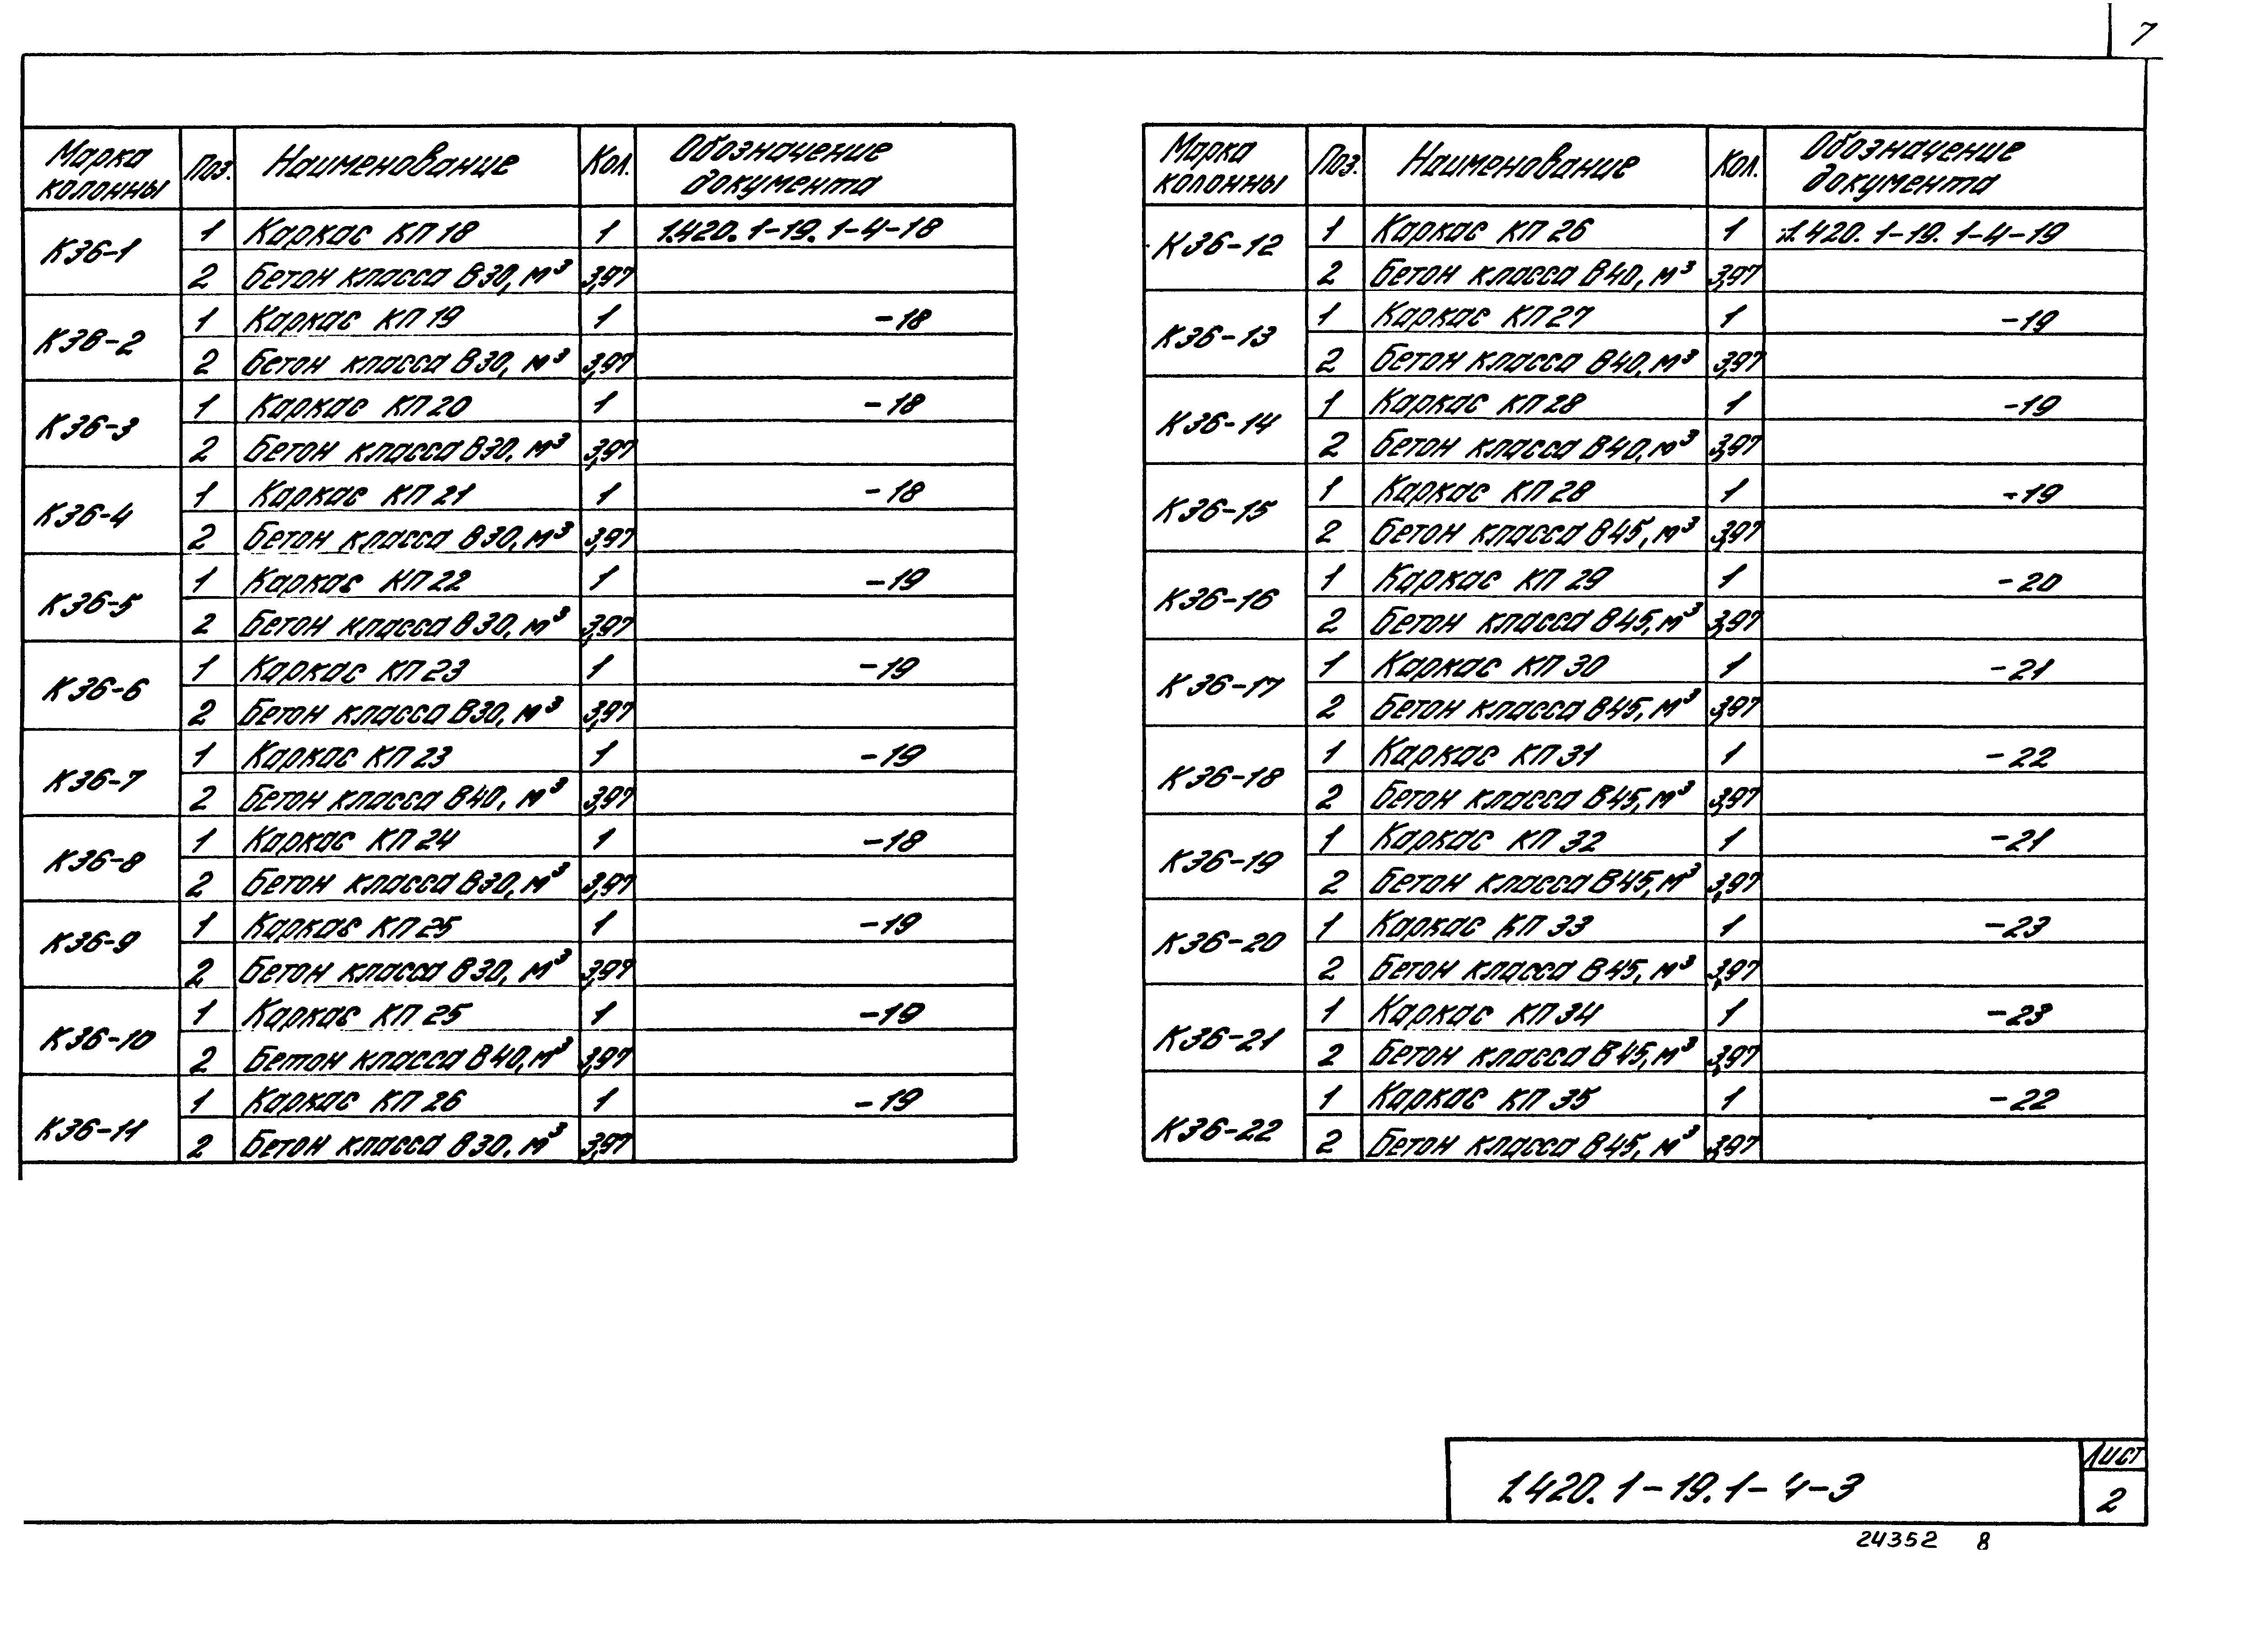 7
Марка колонны Поз. Наименование Кол. Обозначение документа
К36-1 1 Каркас КП18 1 1.420.1-19.1-4-18
2 Бетон класса В30, м³ 3,97
К36-2 1 Каркас КП19 1 -18
2 Бетон класса В30, м³ 3,97
К36-3 1 Каркас КП20 1 -18
2 Бетон класса В30, м³ 3,97
К36-4 1 Каркас КП21 1 -18
2 Бетон класса В30, м³ 3,97
К36-5 1 Каркас КП22 1 -19
2 Бетон класса В30, м³ 3,97
К36-6 1 Каркас КП23 1 -19
2 Бетон класса В30, м³ 3,97
К36-7 1 Каркас КП23 1 -19
2 Бетон класса В40, м³ 3,97
К36-8 1 Каркас КП24 1 -18
2 Бетон класса В30, м³ 3,97
К36-9 1 Каркас КП25 1 -19
2 Бетон класса В30, м³ 3,97
К36-10 1 Каркас КП25 1 -19
2 Бетон класса В40, м³ 3,97
К36-11 1 Каркас КП26 1 -19
2 Бетон класса В30, м³ 3,97
Марка колонны Поз. Наименование Кол. Обозначение документа
К36-12 1 Каркас КП26 1 1.420.1-19.1-4-19
2 Бетон класса В40, м³ 3,97
К36-13 1 Каркас КП27 1 -19
2 Бетон класса В40, м³ 3,97
К36-14 1 Каркас КП28 1 -19
2 Бетон класса В40, м³ 3,97
К36-15 1 Каркас КП28 1 -19
2 Бетон класса В45, м³ 3,97
К36-16 1 Каркас КП29 1 -20
2 Бетон класса В45, м³ 3,97
К36-17 1 Каркас КП30 1 -21
2 Бетон класса В45, м³ 3,97
К36-18 1 Каркас КП31 1 -22
2 Бетон класса В45, м³ 3,97
К36-19 1 Каркас КП32 1 -21
2 Бетон класса В45, м³ 3,97
К36-20 1 Каркас КП33 1 -23
2 Бетон класса В45, м³ 3,97
К36-21 1 Каркас КП34 1 -23
2 Бетон класса В45, м³ 3,97
К36-22 1 Каркас КП35 1 -22
2 Бетон класса В45, м³ 3,97
1.420.1-19.1-4-3
Лист
2
24352 8